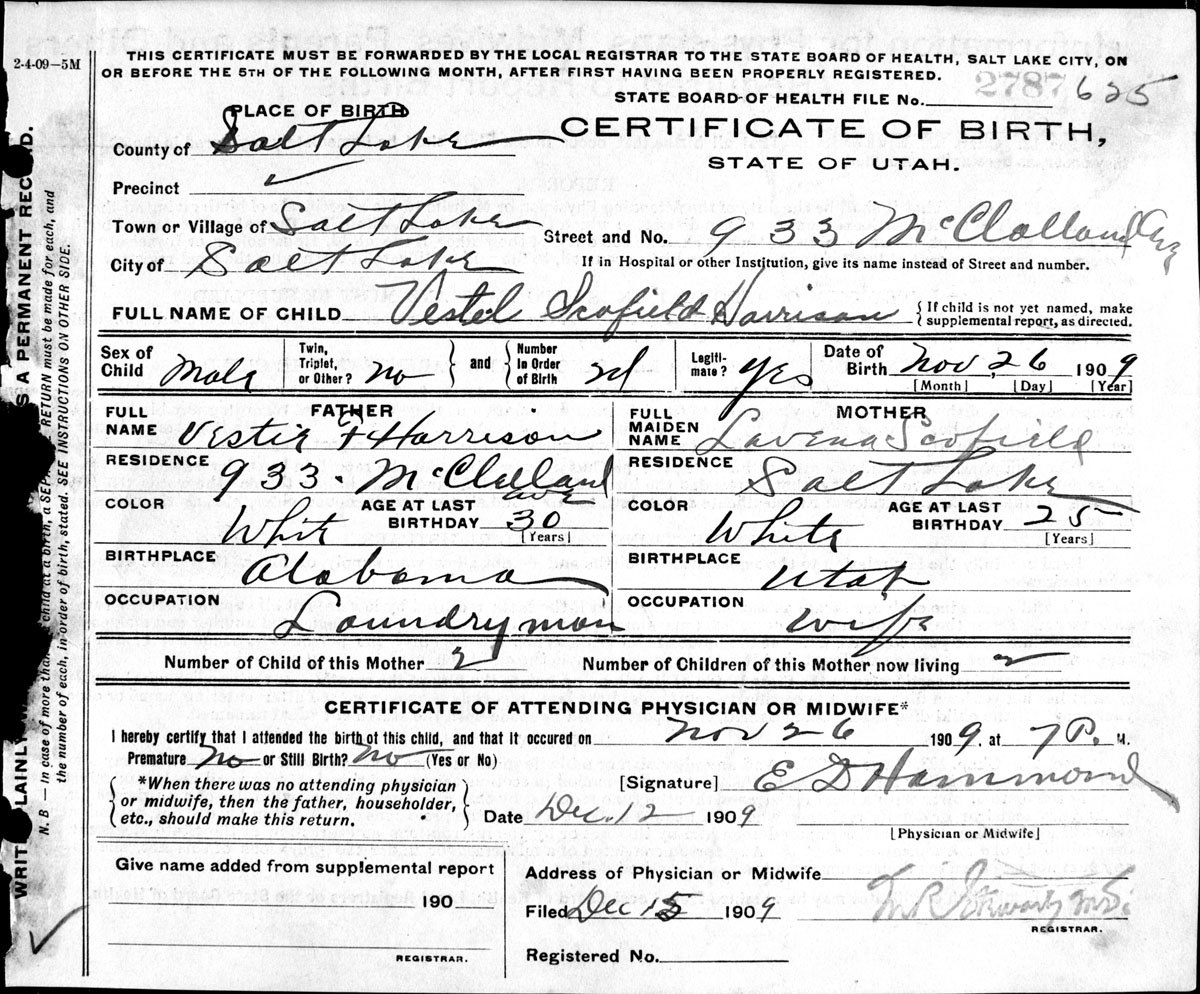 2-4-09—5M
THIS CERTIFICATE MUST BE FORWARDED BY THE LOCAL REGISTRAR TO THE STATE BOARD OF HEALTH, SALT LAKE CITY, ON
OR BEFORE THE 5TH OF THE FOLLOWING MONTH, AFTER FIRST HAVING BEEN PROPERLY REGISTERED.
2787 625
STATE BOARD OF HEALTH FILE No.
PLACE OF BIRTH
CERTIFICATE OF BIRTH,
STATE OF UTAH.
County of Salt Lake
Precinct
Town or Village of Salt Lake
Street and No. 933 McClelland Ave
City of Salt Lake
If in Hospital or other Institution, give its name instead of Street and number.
FULL NAME OF CHILD Vestel Scofield Harrison
{ If child is not yet named, make
supplemental report, as directed.
Sex of Child Male
Twin, Triplet, or Other? no } and { Number in Order of Birth 2d
Legiti-mate? yes
Date of Birth Nov, 26 1909
[Month] [Day] [Year]
FATHER
FULL NAME Vestie F Harrison
RESIDENCE 933. McClelland Ave
COLOR White AGE AT LAST BIRTHDAY 30 [Years]
BIRTHPLACE Alabama
OCCUPATION Laundryman
MOTHER
FULL MAIDEN NAME Lavena Scofield
RESIDENCE Salt Lake
COLOR White AGE AT LAST BIRTHDAY 25 [Years]
BIRTHPLACE Utah
OCCUPATION Wife
Number of Child of this Mother 2 Number of Children of this Mother now living 2
CERTIFICATE OF ATTENDING PHYSICIAN OR MIDWIFE*
I hereby certify that I attended the birth of this child, and that it occured on Nov 26 1909, at 7 P. M.
Premature No or Still Birth? No (Yes or No)
{ *When there was no attending physician
or midwife, then the father, householder,
etc., should make this return. }
[Signature] E D Hammond
Date Dec. 12 1909
[Physician or Midwife]
Give name added from supplemental report
190
REGISTRAR.
Address of Physician or Midwife
Filed Dec 15 1909
REGISTRAR.
Registered No.
S A PERMANENT RECORD.
N. B — In case of more than child at a birth, a RETURN must be made for each, and
the number of each, in order of birth, stated. SEE INSTRUCTIONS ON OTHER SIDE.